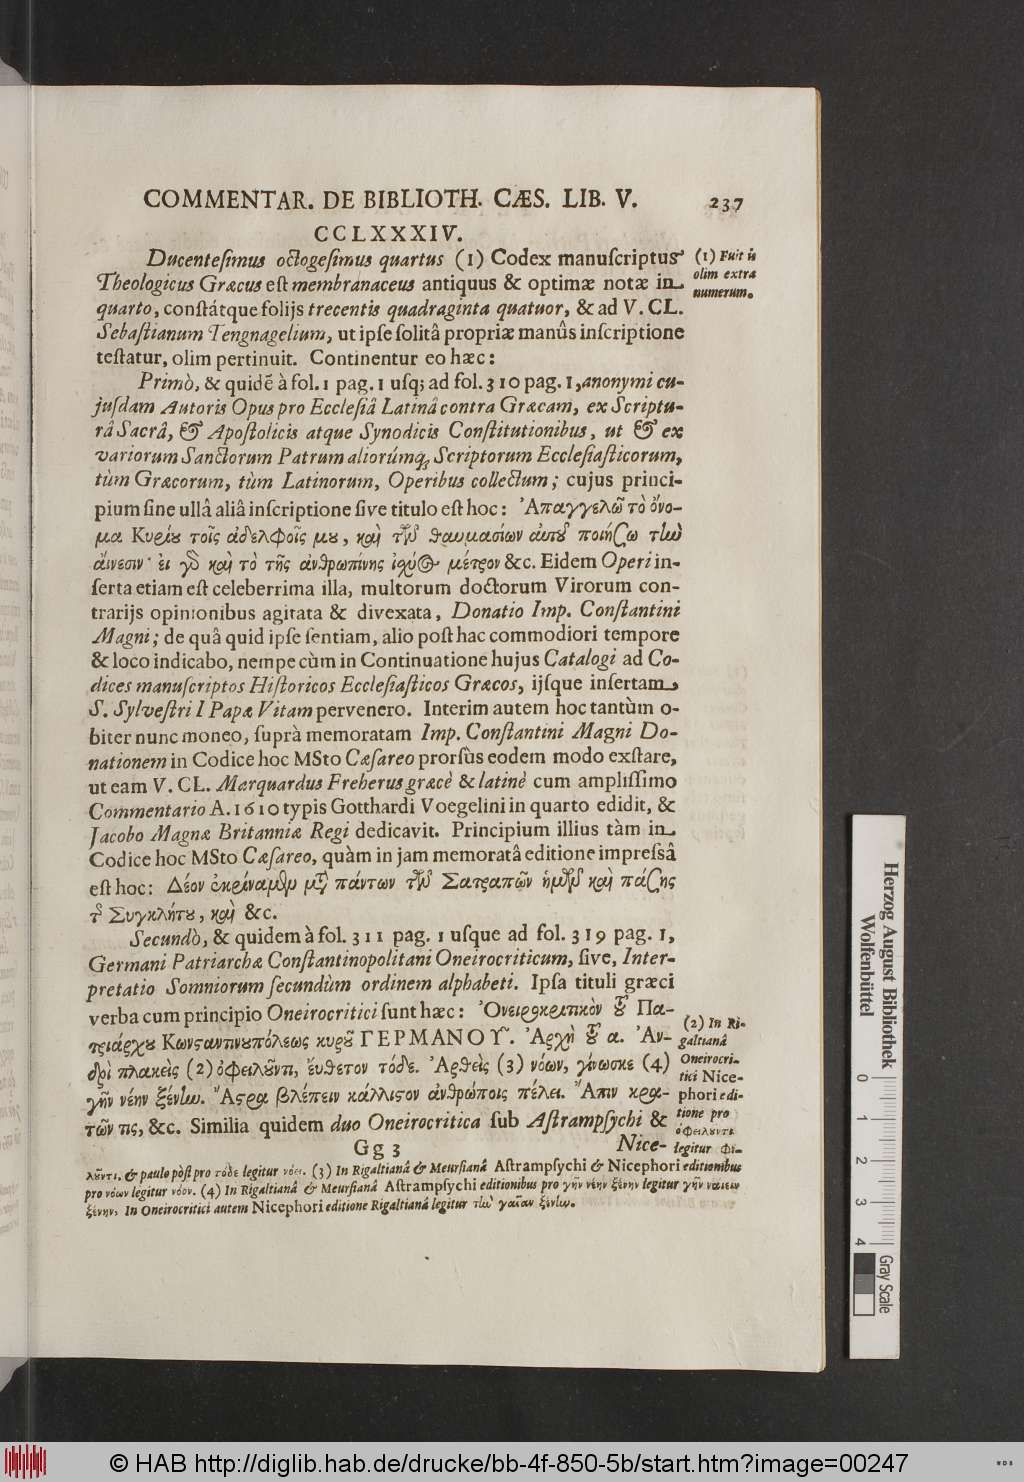 COMMENTAR. DE BIBLIOTH. CÆS. LIB. V. 237
CCLXXXIV.
Ducentesimus octogesimus quartus (1) Codex manuſcriptus
Theologicus Græcus eſt membranaceus antiquus & optimæ notæ in
quarto, conſtátque folijs trecentis quadraginta quatuor, & ad V. CL.
Sebaſtianum Tengnagelium, ut ipſe ſolitâ propriæ manûs inſcriptione
teſtatur, olim pertinuit. Continentur eo hæc:
(1) Fuit is
olim extra
numerum.
Primò, & quidẽ à fol. 1 pag. 1 uſq; ad fol. 310 pag. 1, anonymi cu-
juſdam Autoris Opus pro Eccleſiâ Latinâ contra Græcam, ex Scriptu-
râ Sacrâ, & Apoſtolicis atque Synodicis Conſtitutionibus, ut & ex
variorum Sanctorum Patrum aliorúmq; Scriptorum Eccleſiaſticorum,
tùm Græcorum, tùm Latinorum, Operibus collectum; cujus princi-
pium ſine ullâ aliâ inſcriptione ſive titulo eſt hoc: Ἀπαγγελῶ τὸ ὄνο-
μα Κυρίου τοῖς ἀδελφοῖς μου, καὶ τῶν θαυμασίων αὐτοῦ ποιήσω τὴν
αἴνεσιν· εἰ γὰρ καὶ τὸ τῆς ἀνθρωπίνης ἰσχύος μέτρον &c. Eidem Operi in-
ſerta etiam eſt celeberrima illa, multorum doctorum Virorum con-
trarijs opinionibus agitata & divexata, Donatio Imp. Conſtantini
Magni; de quâ quid ipſe ſentiam, alio poſt hac commodiori tempore
& loco indicabo, nempe cùm in Continuatione hujus Catalogi ad Co-
dices manuſcriptos Hiſtoricos Eccleſiaſticos Græcos, ijſque inſertam
S. Sylveſtri I Papæ Vitam pervenero. Interim autem hoc tantùm o-
biter nunc moneo, ſuprà memoratam Imp. Conſtantini Magni Do-
nationem in Codice hoc MSto Cæſareo prorſùs eodem modo exſtare,
ut eam V. CL. Marquardus Freherus græcè & latinè cum ampliſſimo
Commentario A. 1610 typis Gotthardi Voegelini in quarto edidit, &
Jacobo Magnæ Britanniæ Regi dedicavit. Principium illius tàm in
Codice hoc MSto Cæſareo, quàm in jam memoratâ editione impreſsâ
eſt hoc: Δέον ἐκρίναμεν μετὰ πάντων τῶν Σατραπῶν ἡμῶν καὶ πάσης
τῆς Συγκλήτου, καὶ &c.
Secundò, & quidem à fol. 311 pag. 1 uſque ad fol. 319 pag. 1,
Germani Patriarchæ Conſtantinopolitani Oneirocriticum, ſive, Inter-
pretatio Somniorum ſecundùm ordinem alphabeti. Ipſa tituli græci
verba cum principio Oneirocritici ſunt hæc: Ὀνειροκριτικὸν τοῦ Πα-
τριάρχου Κωνσταντινουπόλεως κυροῦ ΓΕΡΜΑΝΟΥ͂. Ἀρχὴ τοῦ α. Ἀν-
δρὶ πλακεὶς (2) ὀφειλοῦντι, ἔυθετον τόδε. Ἀρθεὶς (3) νόων, γίνωσκε (4)
γῆν νέην ξένων. Ἄστρα βλέπειν κάλλιστον ἀνθρώποις πέλει. Ἄπιν κρα-
τῶν τις, &c. Similia quidem duo Oneirocritica ſub Aſtrampſychi &
(2) In Ri-
galtianâ
Oneirocri-
tici Nice-
phori edi-
tione pro
ὀφειλουντι
legitur Φι-
Gg 3 Nice-
λοῦντι, & paulo pòſt pro τόδε legitur νόει. (3) In Rigaltianâ & Meurſianâ Aſtrampſychi & Nicephori editionibus
pro νόων legitur νόον. (4) In Rigaltianâ & Meurſianâ Aſtrampſychi editionibus pro γῆν νέην ξένην legitur γῆν ναίειν
ξένην, In Oneirocritici autem Nicephori editione Rigaltianâ legitur τὴν γαῖαν ξένων.
Herzog August Bibliothek
Wolfenbüttel
0 1 2 3 4
Gray Scale
© HAB http://diglib.hab.de/drucke/bb-4f-850-5b/start.htm?image=00247